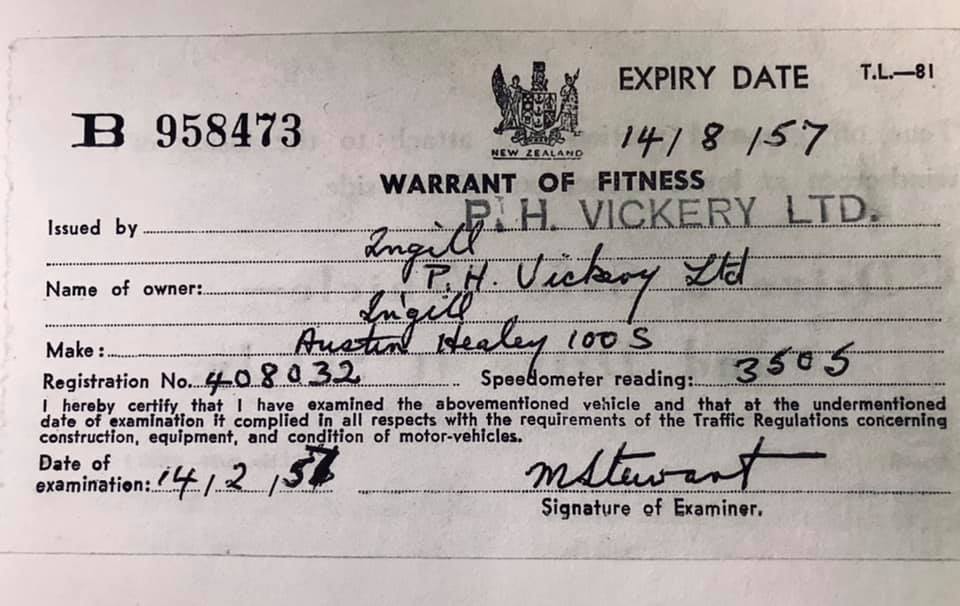 EXPIRY DATE T.L.—81
B 958473
NEW ZEALAND
14/8/57
WARRANT OF FITNESS
Issued by P. H. VICKERY LTD.
Ingill
Name of owner: P.H. Vickery Ltd
Ingill
Make: Austin Healey 100 S
Registration No. 408032 Speedometer reading: 3505
I hereby certify that I have examined the abovementioned vehicle and that at the undermentioned
date of examination it complied in all respects with the requirements of the Traffic Regulations concerning
construction, equipment, and condition of motor-vehicles.
Date of
examination: 14/2/57 MStewart
Signature of Examiner.